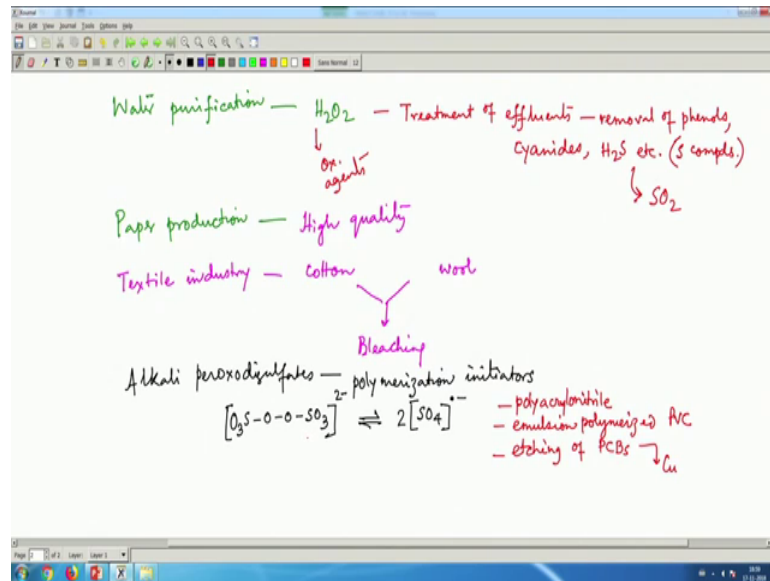 Journal
File Edit View Journal Tools Options Help
Sans Normal 12
Water purification — H₂O₂ — Treatment of effluents — removal of phenols,
Ox. agents
cyanides, H₂S etc. (S compds.)
SO₂
Paper production — High quality
Textile industry — cotton wool
Bleaching
Alkali peroxodisulfates — polymerization initiators
[O₃S-O-O-SO₃]²⁻ ⇌ 2[SO₄]•⁻
— polyacrylonitrile
— emulsion polymerized PVC
— etching of PCBs
Cu
Page 2 of 2 Layer: Layer 1
18:59